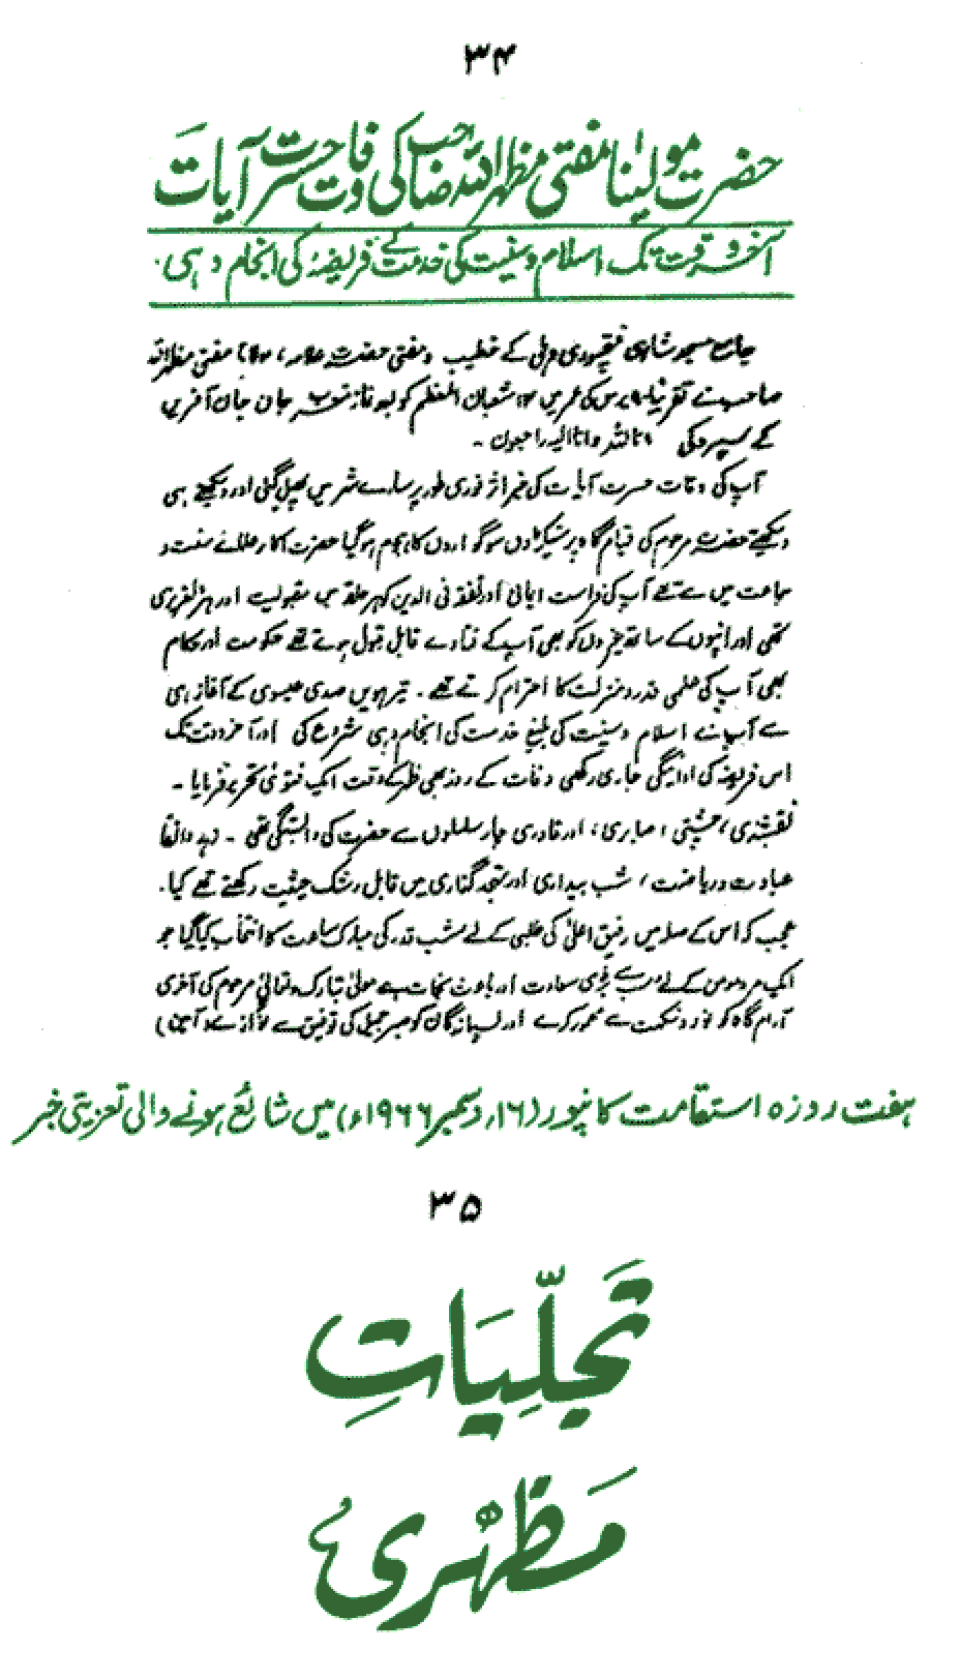 ۳۴
حضرت مولینا مفتی مظہر اللہ صاحب کی وفات حسرت آیات
آخر وقت تک اسلام و سنیت کی خدمت کے فریضۂ کی انجام دہی۔
جامع مسجد شاہی فتحپوری دہلی کے خطیب و مفتی حضرت علامہ، مولانا مفتی مظہر اللہ
صاحب نے تقریباً کی عمر میں شعبان المعظم کو بعد نماز مغرب جان جان آفریں
کے سپرد کی انا للہ وانا الیہ راجعون ۔
آپ کی وفات حسرت آیات کی خبر اثر فوری طور پر سارے شہر میں پھیل گئی اور دیکھتے ہی
دیکھتے حضرت مرحوم کی قیام گاہ پر سیکڑوں سوگواروں کا ہجوم ہو گیا حضرت اکابر علمائے سنت و
جماعت میں سے تھے آپ کی فراست ایمانی اور تفقہ فی الدین کو ہر حلقہ میں مقبولیت اور ہر لعزیزی
تھی اور اپنوں کے ساتھ غیروں کو بھی آپ کے فتاوے قابل قبول ہوتے تھے حکومت اور حکام
بھی آپ کی علمی قدر و منزلت کا احترام کرتے تھے ۔ تیرہویں صدی عیسوی کے آغاز ہی
سے آپ نے اسلام و سنیت کی تبلیغ خدمت کی انجام دہی شروع کی اور آخر وقت تک
اس فریضہ کی ادائیگی جاری رکھی وفات کے روز بھی ظہر کے وقت ایک فتویٰ تحریر فرمایا ۔
نقشبندی، چشتی، صابری، اور قادری چار سلسلوں سے حضرت کی وابستگی تھی ۔ زہد و اتقا
عبادت و ریاضت، شب بیداری اور تہجد گذاری میں قابل رشک حیثیت رکھتے تھے کیا۔
عجب کہ اس کے صلہ میں رفیق اعلیٰ کی طلبی کے لئے شب قدر کی مبارک ساعت کا انتخاب کیا گیا جو
ایک مرد مومن کے لئے سب سے بڑی سعادت اور باعث نجات ہے مولیٰ تبارک و تعالیٰ مرحوم کی آخری
آرام گاہ کو نور و نکہت سے معمور کرے اور پسماندگان کو صبر جمیل کی توفیق سے نوازے (آمین)
ہفت روزہ استقامت کانپور (۱۶؍ دسمبر ۱۹۶۶ء) میں شائع ہونے والی تعزیتی خبر
۳۵
تجلّیاتِ
مظہری